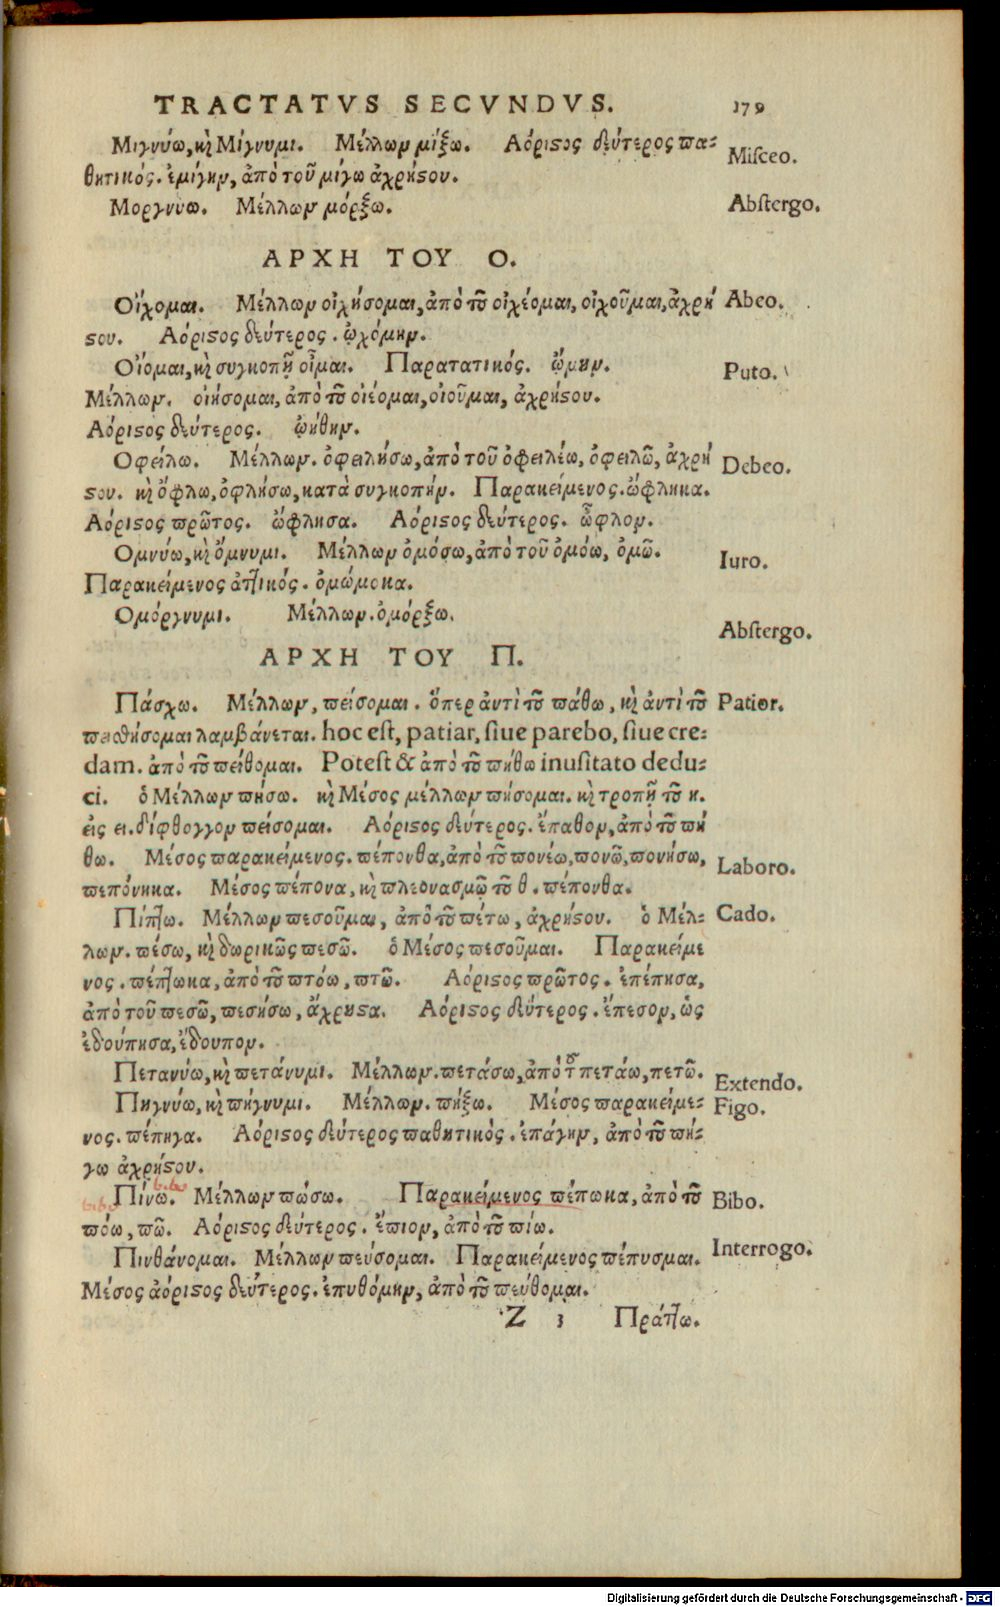 TRACTATVS SECVNDVS. 179
Μιγνύω, καὶ Μίγνυμι. Μέλλων μίξω. Αόριστος δεύτερος πα-
Misceo.
θητικός. ἐμίγην, ἀπὸ τοῦ μίγω ἀχρήστου.
Μοργνύω. Μέλλων μόρξω.
Abstergo.
ΑΡΧΗ ΤΟΥ Ο.
Οἴχομαι. Μέλλων οἰχήσομαι, ἀπὸ τοῦ οἰχέομαι, οἰχοῦμαι, ἀχρή
Abeo.
στου. Αόριστος δεύτερος. ᾠχόμην.
Οἴομαι, καὶ συγκοπῇ οἶμαι. Παρατατικός. ᾤμην.
Puto.
Μέλλων. οἰήσομαι, ἀπὸ τοῦ οἰέομαι, οἰοῦμαι, ἀχρήστου.
Αόριστος δεύτερος. ᾠήθην.
Οφείλω. Μέλλων. ὀφειλήσω, ἀπὸ τοῦ ὀφειλέω, ὀφειλῶ, ἀχρή
Debeo.
στου. καὶ ὄφλω, ὀφλήσω, κατὰ συγκοπήν. Παρακείμενος. ὤφληκα.
Αόριστος πρῶτος. ὤφλησα. Αόριστος δεύτερος. ὦφλον.
Ομνύω, καὶ ὄμνυμι. Μέλλων ὀμόσω, ἀπὸ τοῦ ὀμόω, ὀμῶ.
Iuro.
Παρακείμενος ἀττικός. ὀμώμοκα.
Ομόργνυμι. Μέλλων. ὀμόρξω.
Abstergo.
ΑΡΧΗ ΤΟΥ Π.
Πάσχω. Μέλλων, πείσομαι. ὅπερ ἀντὶ τοῦ πάθω, καὶ ἀντὶ τοῦ
Patior.
πεισθήσομαι λαμβάνεται. hoc est, patiar, siue parebo, siue cre-
dam. ἀπὸ τοῦ πείθομαι. Potest & ἀπὸ τοῦ πήθω inusitato dedu-
ci. ὁ Μέλλων πήσω. καὶ Μέσος μέλλων πήσομαι. καὶ τροπῇ τοῦ η.
εἰς ει. δίφθογγον πείσομαι. Αόριστος δεύτερος. ἔπαθον, ἀπὸ τοῦ πή
θω. Μέσος παρακείμενος. πέπονθα, ἀπὸ τοῦ πονέω, πονῶ, πονήσω,
Laboro.
πεπόνηκα. Μέσος πέπονα, καὶ πλεονασμῷ τοῦ θ. πέπονθα.
Πίπτω. Μέλλων πεσοῦμαι, ἀπὸ τοῦ πέτω, ἀχρήστου. ὁ Μέλ-
Cado.
λων. πέσω, καὶ δωρικῶς πεσῶ. ὁ Μέσος πεσοῦμαι. Παρακείμε
νος. πέπτωκα, ἀπὸ τοῦ πτόω, πτῶ. Αόριστος πρῶτος. ἐπέπησα,
ἀπὸ τοῦ πεσῶ, πεσήσω, ἄχρηστα. Αόριστος δεύτερος. ἔπεσον, ὡς
ἐδούπησα, ἔδουπον.
Πετανύω, καὶ πετάνυμι. Μέλλων. πετάσω, ἀπὸ τοῦ πετάω, πετῶ.
Extendo.
Πηγνύω, καὶ πήγνυμι. Μέλλων. πήξω. Μέσος παρακείμε-
Figo.
νος. πέπηγα. Αόριστος δεύτερος παθητικὸς. ἐπάγην, ἀπὸ τοῦ πή-
γω ἀχρήστου.
bibo
bibo
Πίνω. Μέλλων πώσω. Παρακείμενος πέπωκα, ἀπὸ τοῦ
Bibo.
πόω, πῶ. Αόριστος δεύτερος. ἔπιον, ἀπὸ τοῦ πίω.
Πυνθάνομαι. Μέλλων πεύσομαι. Παρακείμενος πέπυσμαι.
Interrogo.
Μέσος ἀόριστος δεύτερος. ἐπυθόμην, ἀπὸ τοῦ πεύθομαι.
Z 3 Πράττω.
Digitalisierung gefördert durch die Deutsche Forschungsgemeinschaft - DFG